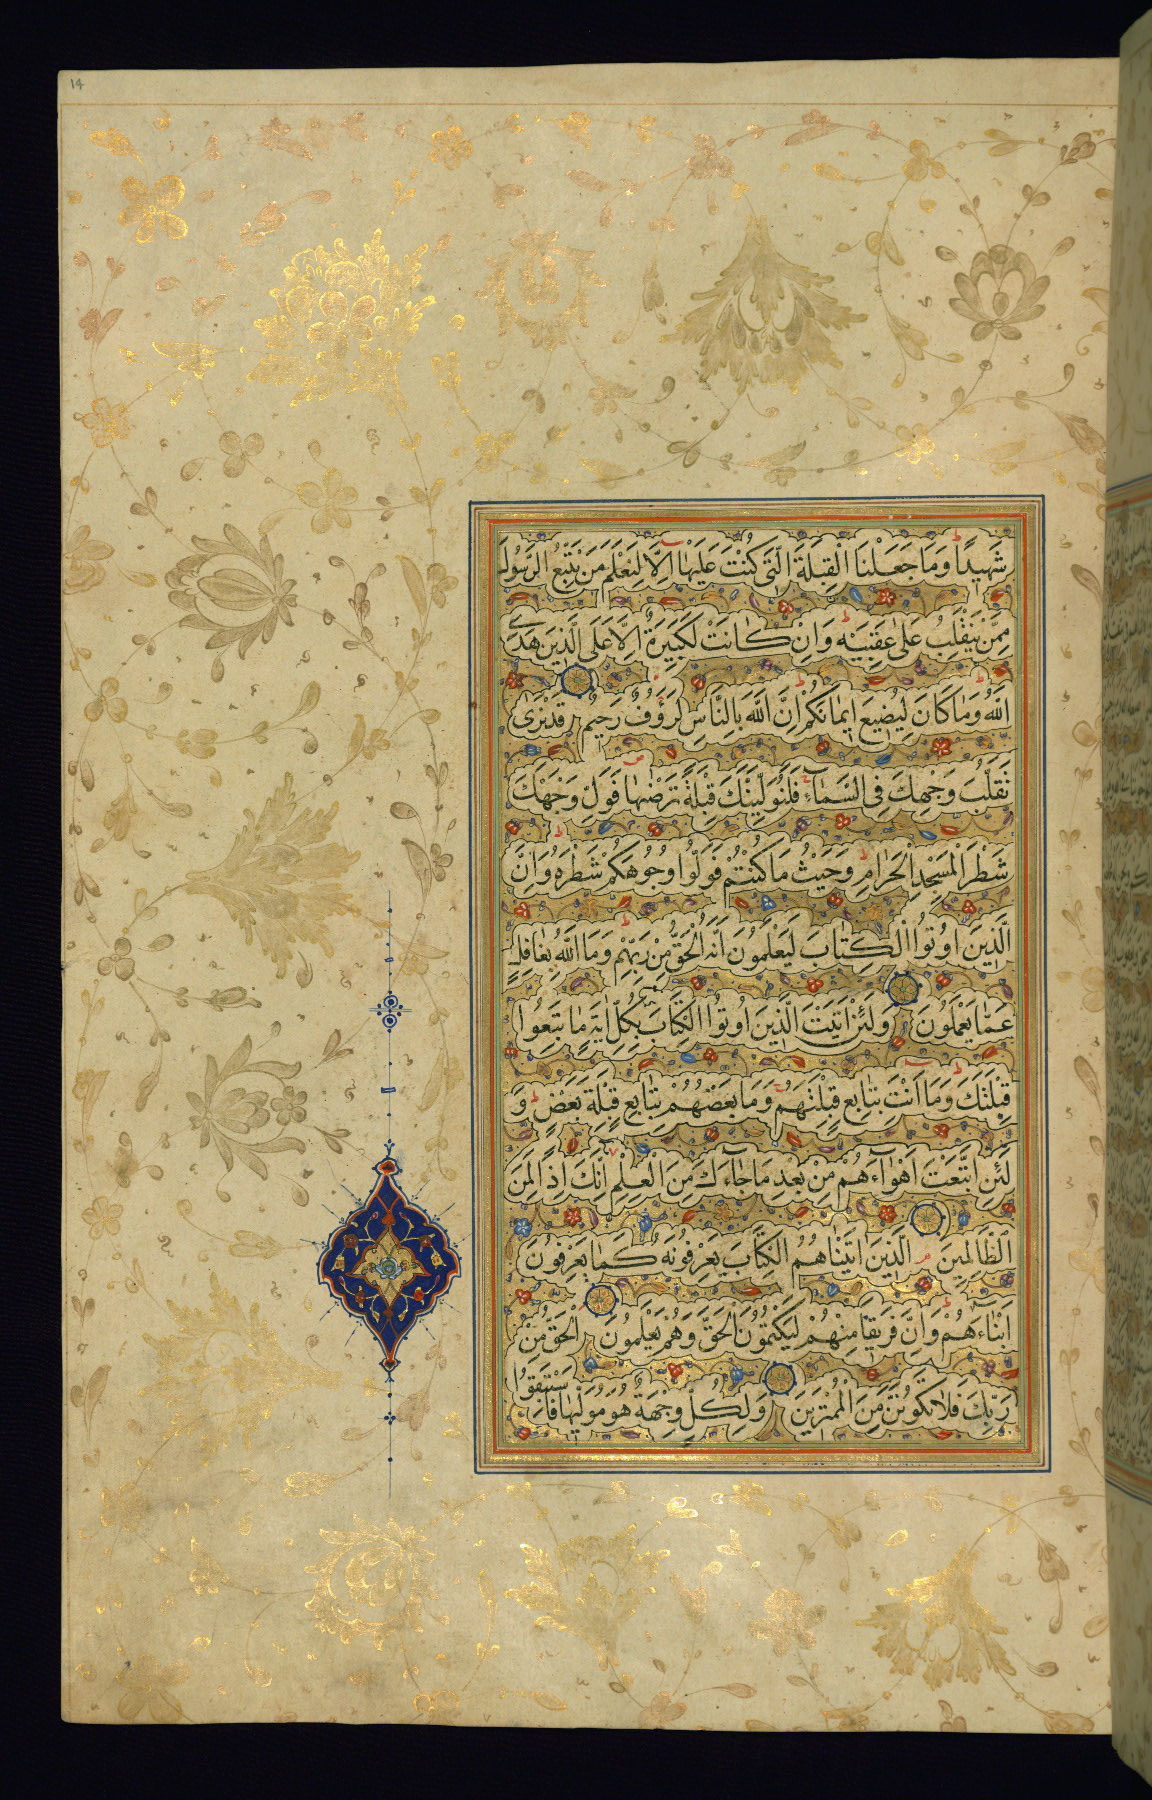 14
شَهِيدًا وَمَا جَعَلْنَا الْقِبْلَةَ الَّتِي كُنْتَ عَلَيْهَا إِلَّا لِنَعْلَمَ مَنْ يَتَّبِعُ الرَّسُولَ
مِمَّنْ يَنْقَلِبُ عَلَى عَقِبَيْهِ وَإِنْ كَانَتْ لَكَبِيرَةً إِلَّا عَلَى الَّذِينَ هَدَى
اللَّهُ وَمَا كَانَ لِيُضِيعَ إِيمَانَكُمْ إِنَّ اللَّهَ بِالنَّاسِ لَرَؤُفٌ رَحِيمٌ قَدْ نَرَى
تَقَلُّبَ وَجْهِكَ فِي السَّمَاءِ فَلَنُوَلِّيَنَّكَ قِبْلَةً تَرْضٰيهَا فَوَلِّ وَجْهَكَ
شَطْرَ الْمَسْجِدِ الْحَرَامِ وَحَيْثُ مَا كُنْتُمْ فَوَلُّوا وُجُوهَكُمْ شَطْرَهُ وَإِنَّ
الَّذِينَ أُوتُوا الْكِتَابَ لَيَعْلَمُونَ أَنَّهُ الْحَقُّ مِنْ رَبِّهِمْ وَمَا اللَّهُ بِغَافِلٍ
عَمَّا يَعْمَلُونَ وَلَئِنْ أَتَيْتَ الَّذِينَ أُوتُوا الْكِتَابَ بِكُلِّ آيَةٍ مَا تَبِعُوا
قِبْلَتَكَ وَمَا أَنْتَ بِتَابِعٍ قِبْلَتَهُمْ وَمَا بَعْضُهُمْ بِتَابِعٍ قِبْلَةَ بَعْضٍ وَ
لَئِنِ اتَّبَعْتَ أَهْوَاءَهُمْ مِنْ بَعْدِ مَا جَاءَكَ مِنَ الْعِلْمِ إِنَّكَ إِذًا لَمِنَ
الظَّالِمِينَ الَّذِينَ آتَيْنَاهُمُ الْكِتَابَ يَعْرِفُونَهُ كَمَا يَعْرِفُونَ
أَبْنَاءَهُمْ وَإِنَّ فَرِيقًا مِنْهُمْ لَيَكْتُمُونَ الْحَقَّ وَهُمْ يَعْلَمُونَ الْحَقُّ مِنْ
رَبِّكَ فَلَا تَكُونَنَّ مِنَ الْمُمْتَرِينَ وَلِكُلٍّ وِجْهَةٌ هُوَ مُوَلِّيهَا فَاسْتَبِقُوا